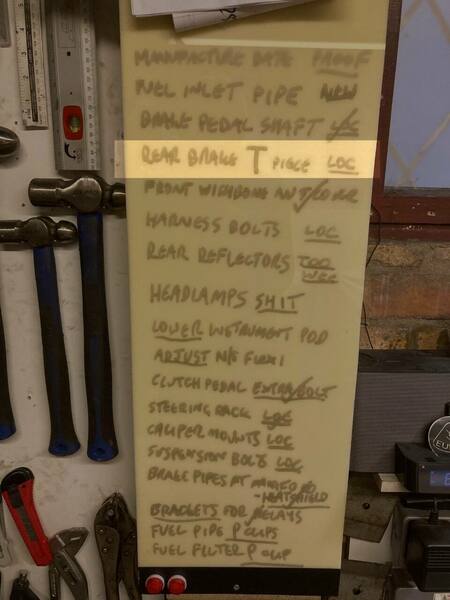 MANUFACTURE DATE PROOF
FUEL INLET PIPE NEW
BRAKE PEDAL SHAFT
REAR BRAKE T PIECE LOC
FRONT WISHBONE
HARNESS BOLTS LOC
REAR REFLECTORS TOO
WEE
HEADLAMPS SHIT
LOWER INSTRUMENT POD
ADJUST N/S FLEXI
CLUTCH PEDAL EXTRA BOLT
STEERING RACK LOC
CALIPER MOUNTS LOC
SUSPENSION BOLTS LOC
BRAKE PIPES AT
HEATSHIELD
BRACKETS FOR RELAYS
FUEL PIPE P CLIPS
FUEL FILTER P CLIP